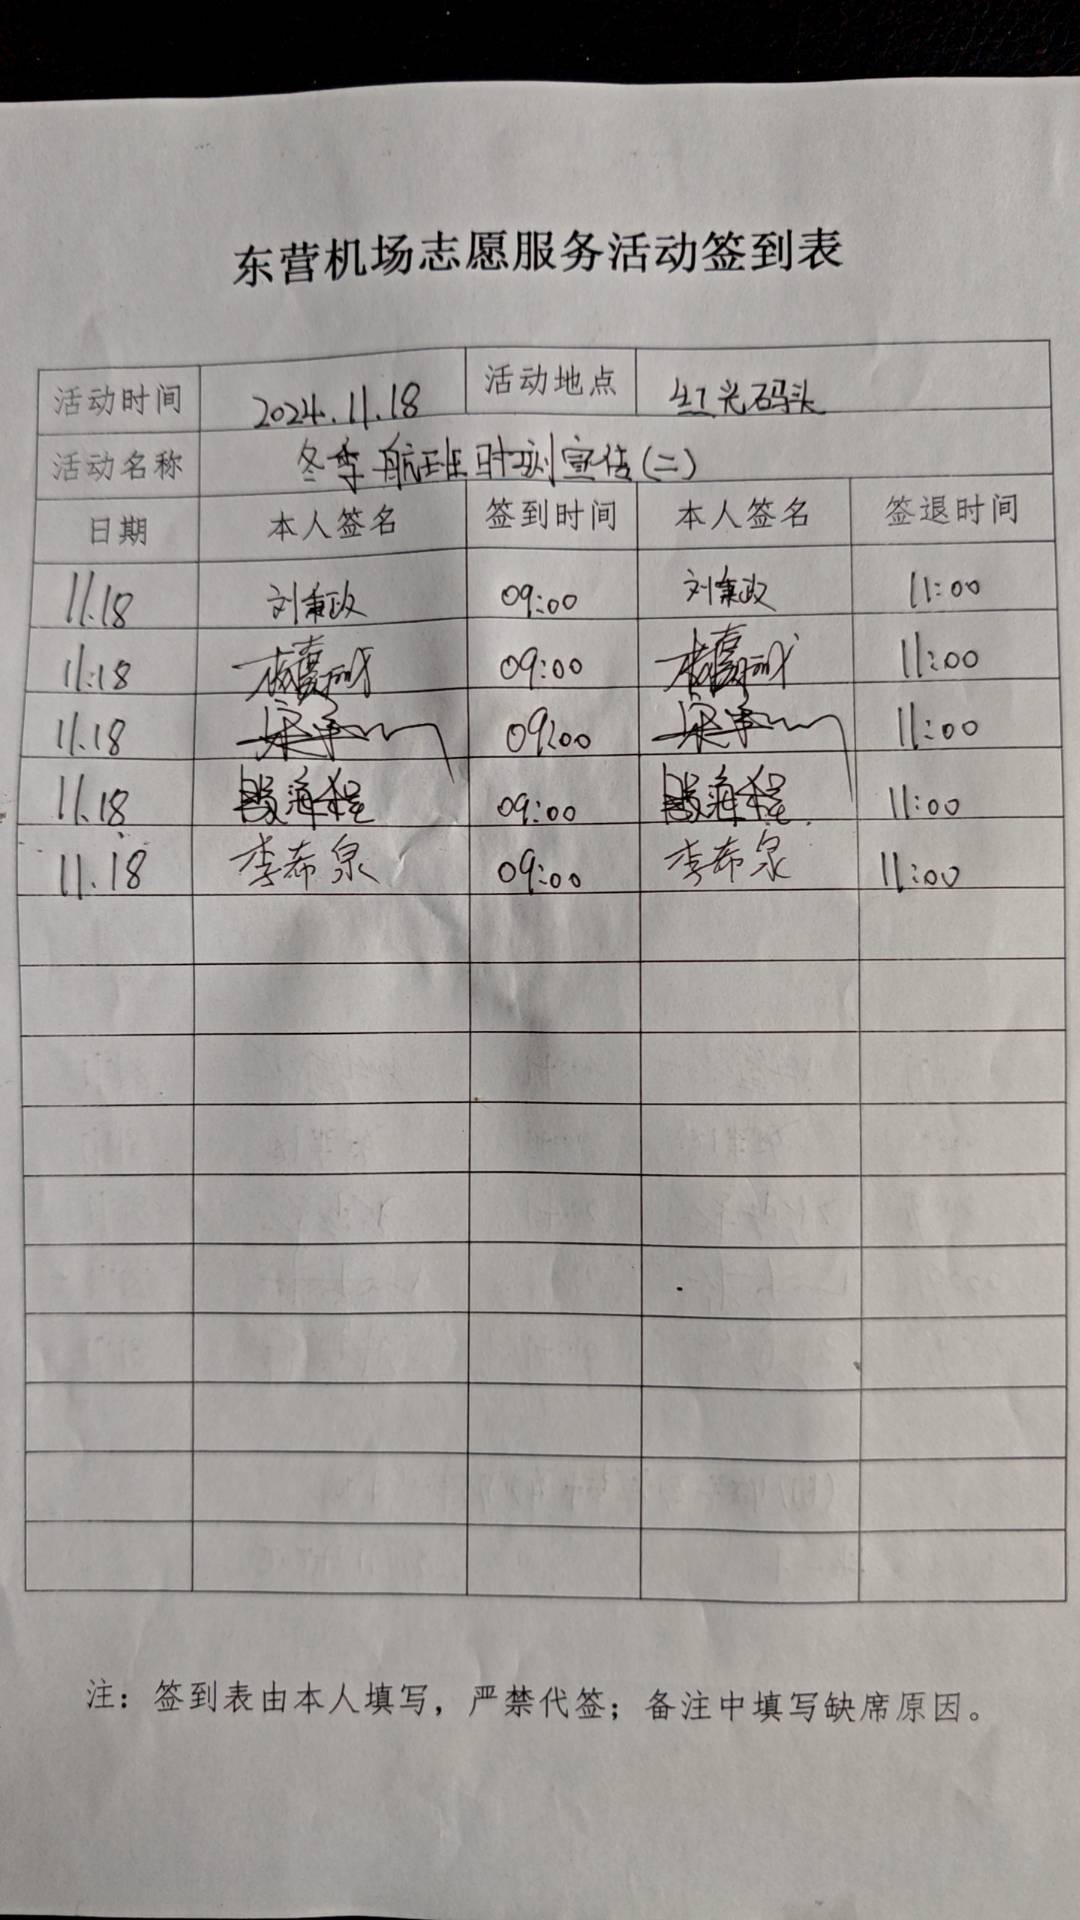 东营机场志愿服务活动签到表
活动时间 2024.11.18 活动地点 红光码头
活动名称 冬季航班时刻宣传(二)
日期 本人签名 签到时间 本人签名 签退时间
11.18 刘秉政 09:00 刘秉政 11:00
11.18 09:00 11:00
11.18 09:00 11:00
11.18 段海程 09:00 段海程 11:00
11.18 李希泉 09:00 李希泉 11:00
注：签到表由本人填写，严禁代签；备注中填写缺席原因。